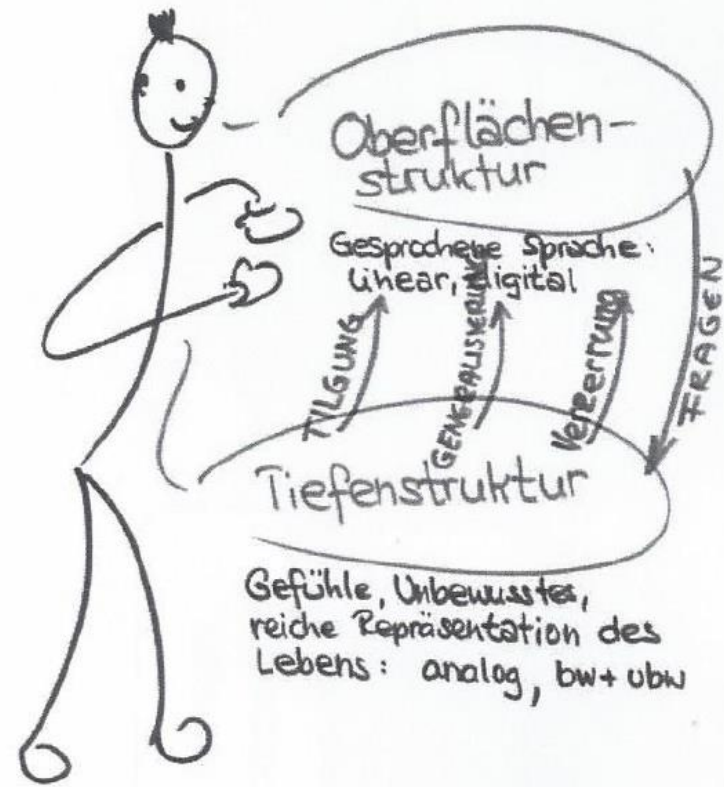 Oberflächen-
struktur
Gesprochene Sprache:
linear, digital
TILGUNG
GENERALISIERUNG
Verzerrung
FRAGEN
Tiefenstruktur
Gefühle, Unbewusstes,
reiche Repräsentation des
Lebens: analog, bw+ubw